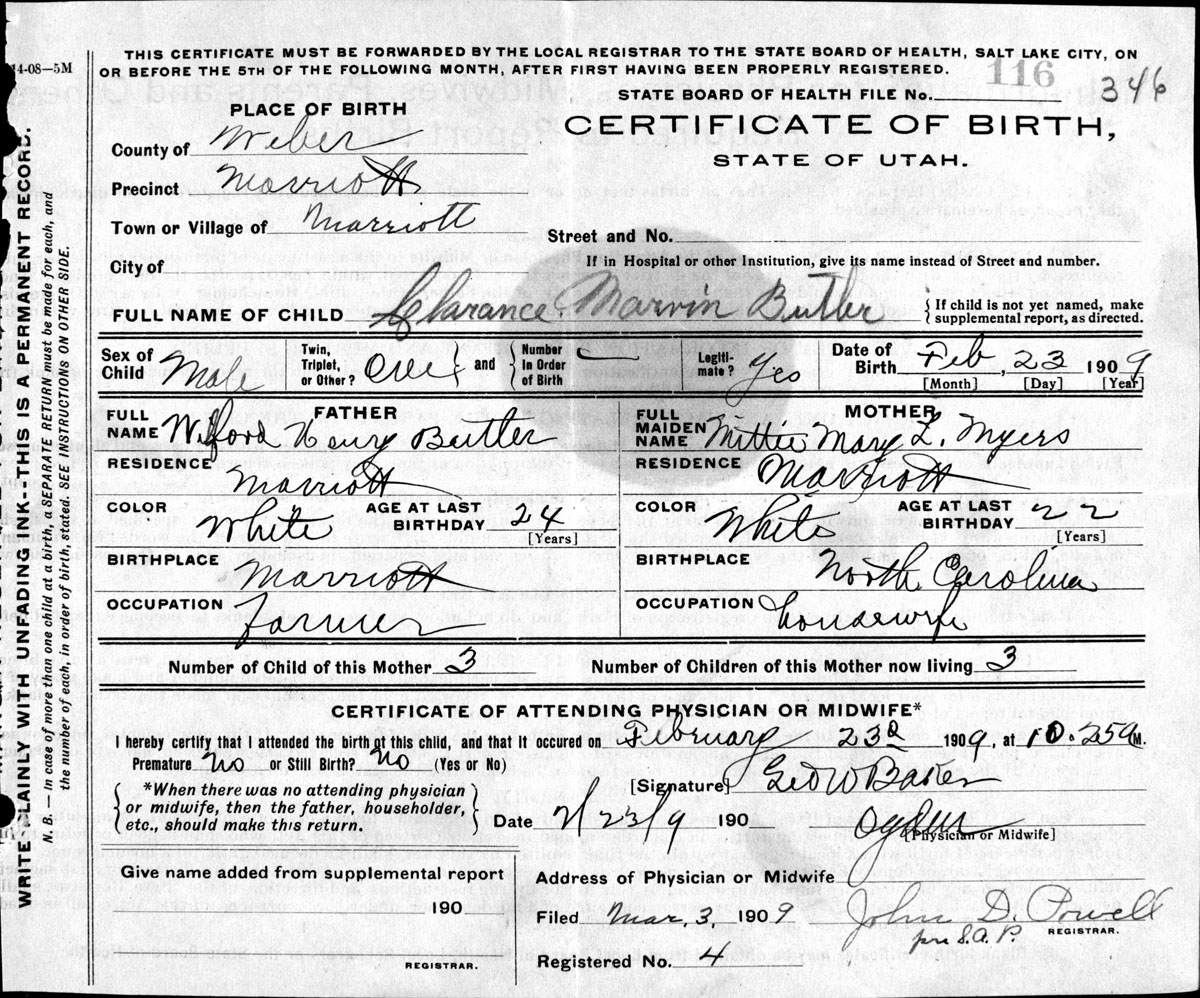 THIS CERTIFICATE MUST BE FORWARDED BY THE LOCAL REGISTRAR TO THE STATE BOARD OF HEALTH, SALT LAKE CITY, ON
OR BEFORE THE 5TH OF THE FOLLOWING MONTH, AFTER FIRST HAVING BEEN PROPERLY REGISTERED.
14-08—5M
116
STATE BOARD OF HEALTH FILE No. 346
PLACE OF BIRTH
CERTIFICATE OF BIRTH,
STATE OF UTAH.
County of Weber
Precinct Marriott
Town or Village of Marriott
Street and No.
City of
If in Hospital or other Institution, give its name instead of Street and number.
FULL NAME OF CHILD Clarance Marvin Butler
{ If child is not yet named, make
supplemental report, as directed.
Sex of Child Male
Twin, Triplet, or Other? One } and { Number In Order of Birth —
Legiti- mate? Yes
Date of Birth Feb, 23 1909
[Month] [Day] [Year]
FATHER
FULL NAME Wilford Henry Butler
RESIDENCE Marriott
COLOR White AGE AT LAST BIRTHDAY 24
[Years]
BIRTHPLACE Marriott
OCCUPATION Farmer
MOTHER
FULL MAIDEN NAME Mittie Mary L. Myers
RESIDENCE Marriott
COLOR White AGE AT LAST BIRTHDAY 22
[Years]
BIRTHPLACE North Carolina
OCCUPATION housewife
Number of Child of this Mother 3 Number of Children of this Mother now living 3
CERTIFICATE OF ATTENDING PHYSICIAN OR MIDWIFE*
I hereby certify that I attended the birth of this child, and that it occured on February 23d 1909, at 10.25a M.
Premature No or Still Birth? No (Yes or No)
[Signature] Geo W Baker
{ *When there was no attending physician
or midwife, then the father, householder,
etc., should make this return. }
Date 2/23/9 190 Ogden
[Physician or Midwife]
Give name added from supplemental report
190
REGISTRAR.
Address of Physician or Midwife
Filed Mar, 3, 1909 John D. Powell
per S.A.P. REGISTRAR.
Registered No. 4
WRITE PLAINLY WITH UNFADING INK--THIS IS A PERMANENT RECORD.
N. B. — In case of more than one child at a birth, a SEPARATE RETURN must be made for each, and
the number of each, in order of birth, stated. SEE INSTRUCTIONS ON OTHER SIDE.